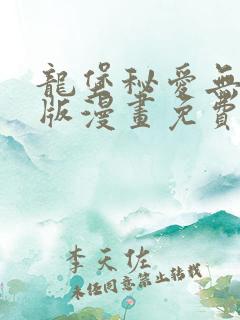 龍堡秘愛無
版漫畫免費
李天佐
未经同意禁止转载